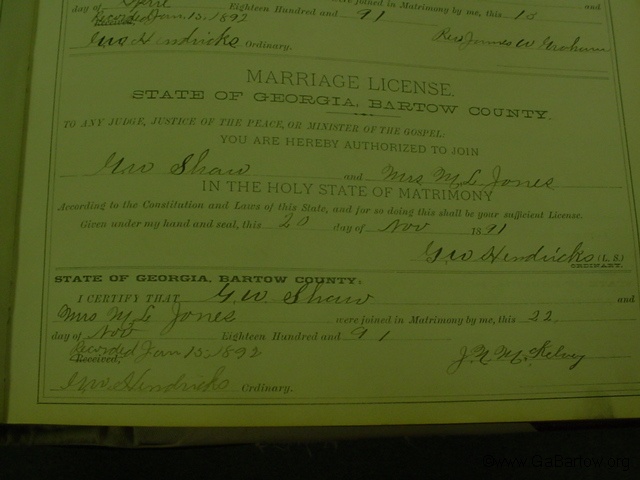 day of April Eighteen Hundred and 91
joined in Matrimony by me, this 15 and
Recorded Jan 15, 1892
Geo Hendricks Ordinary. Rev James W Graham
MARRIAGE LICENSE.
STATE OF GEORGIA, BARTOW COUNTY.
TO ANY JUDGE, JUSTICE OF THE PEACE, OR MINISTER OF THE GOSPEL:
YOU ARE HEREBY AUTHORIZED TO JOIN
G W Shaw and Mrs M. L Jones
IN THE HOLY STATE OF MATRIMONY
According to the Constitution and Laws of this State, and for so doing this shall be your sufficient License.
Given under my hand and seal, this 20 day of Nov 1891
G W Hendricks (L. S.)
ORDINARY.
STATE OF GEORGIA, BARTOW COUNTY:
I CERTIFY THAT G. W. Shaw and
Mrs M L Jones were joined in Matrimony by me, this 22
day of Nov Eighteen Hundred and 91
Recorded Jan 15, 1892
Received,
J. N. McKelvey
G W Hendricks Ordinary.
www.GaBartow.org